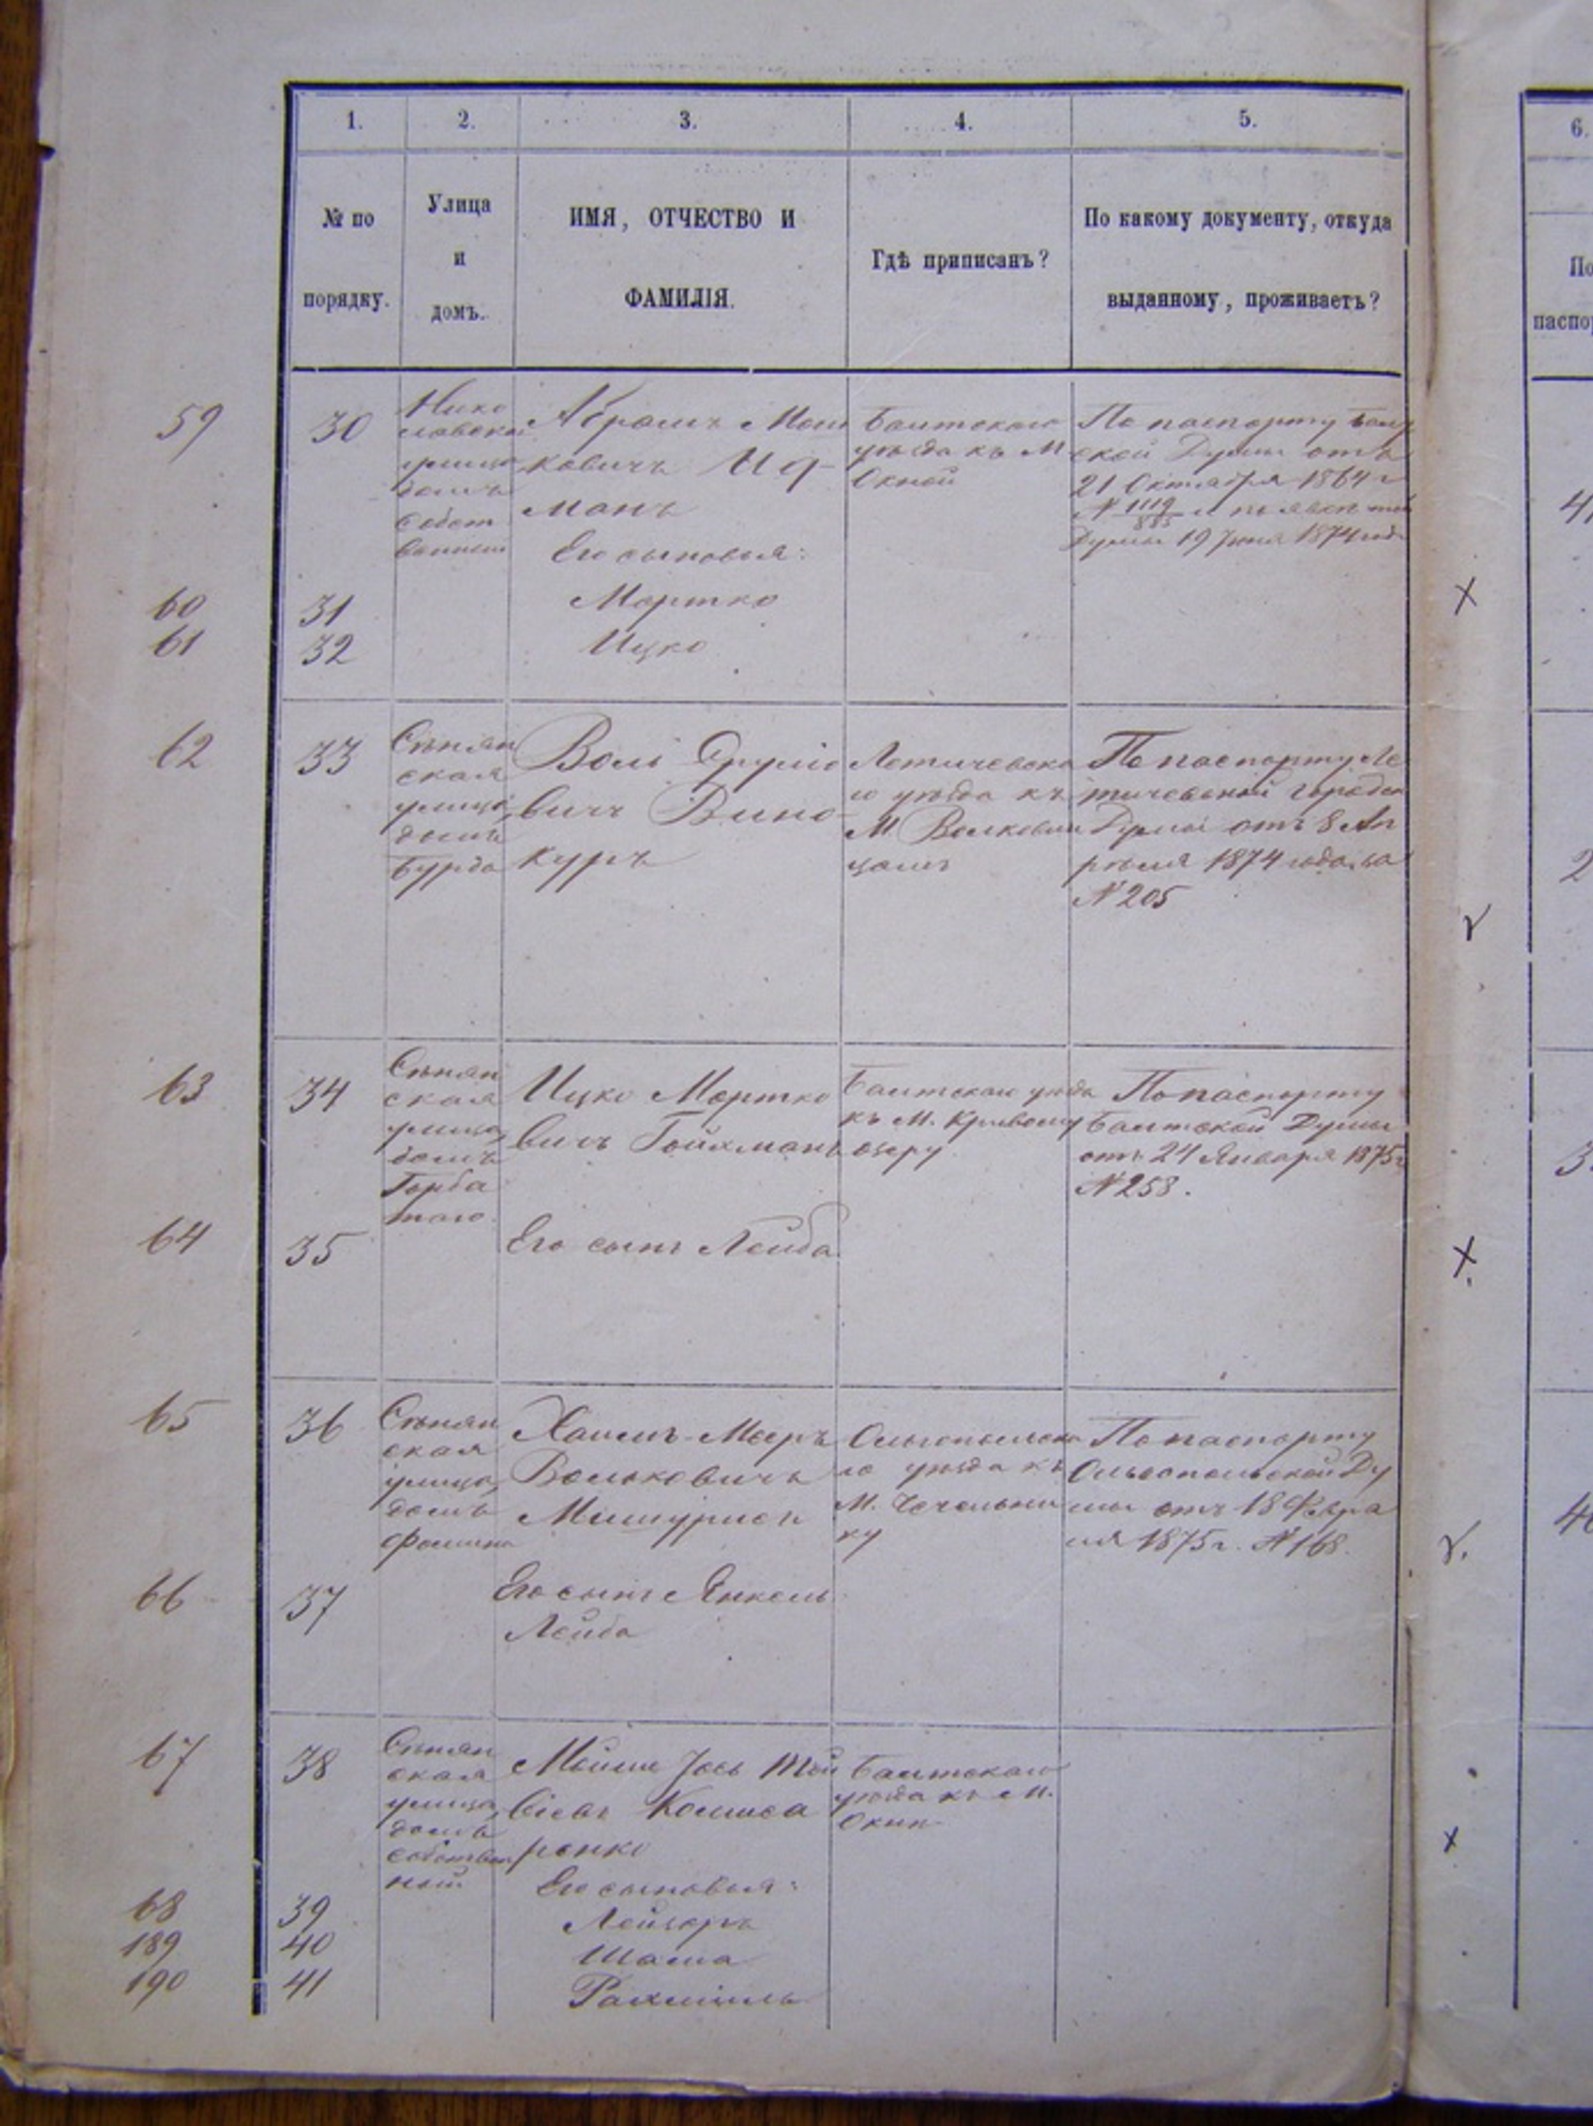 1. 2. 3. 4. 5. 6.
№ по
порядку.
Улица
и
домъ.
ИМЯ, ОТЧЕСТВО И
ФАМИЛІЯ.
Гдѣ приписанъ?
По какому документу, откуда
выданному, проживаетъ?
По
паспор
59
30
Нико
лаевская
улица
домъ
собст
венный
Абрамъ Мош
ковичъ
манъ
Его сыновья:
Балтскаго
уѣзда къ М
Окной
По паспорту Балт
ской Думы отъ
21 Октября 1864 г
№ 1119
Думы 19 Іюня 1874 года
60
31
Мортко
61
32
Ицко
62
33
Сѣнян
ская
улица
домъ
Бурда
Воль Сруліо
вичъ Вино
куръ
Летичевска
го уѣзда къ
М Волковин
цамъ
По паспорту Ле
тичевской Городск
Думы отъ 8 Ап
рѣля 1874 года за
№ 205
2
63
34
Сѣнян
ская
улица,
домъ
Горба
таго.
Ицко Мортко
вичъ Гойхманъ
Балтскаго уѣзда
къ М. Кривому
озеру
По паспорту
Балтской Думы
отъ 24 Января 1875 г
№ 258.
64
35
Его сынъ Лейба
65
36
Сѣнян
ская
улица,
домъ
Хаимъ-Мееръ
Вольковичъ
Мишурисъ
Ольгопольска
го уѣзда къ
М. Чечельни
ку
По паспорту
Ольгопольской Ду
мы отъ 18 Февра
ля 1875 г. № 168.
66
37
Его сынъ Янкель
Лейба
67
38
Сѣнян
ская
улица,
домъ
собствен
ный
Мойше Іось
Балтскаго
уѣзда къ М.
Окнѣ
ренко
Его сыновья:
68
39
Лейзеръ
189
40
190
41
Рахмиль